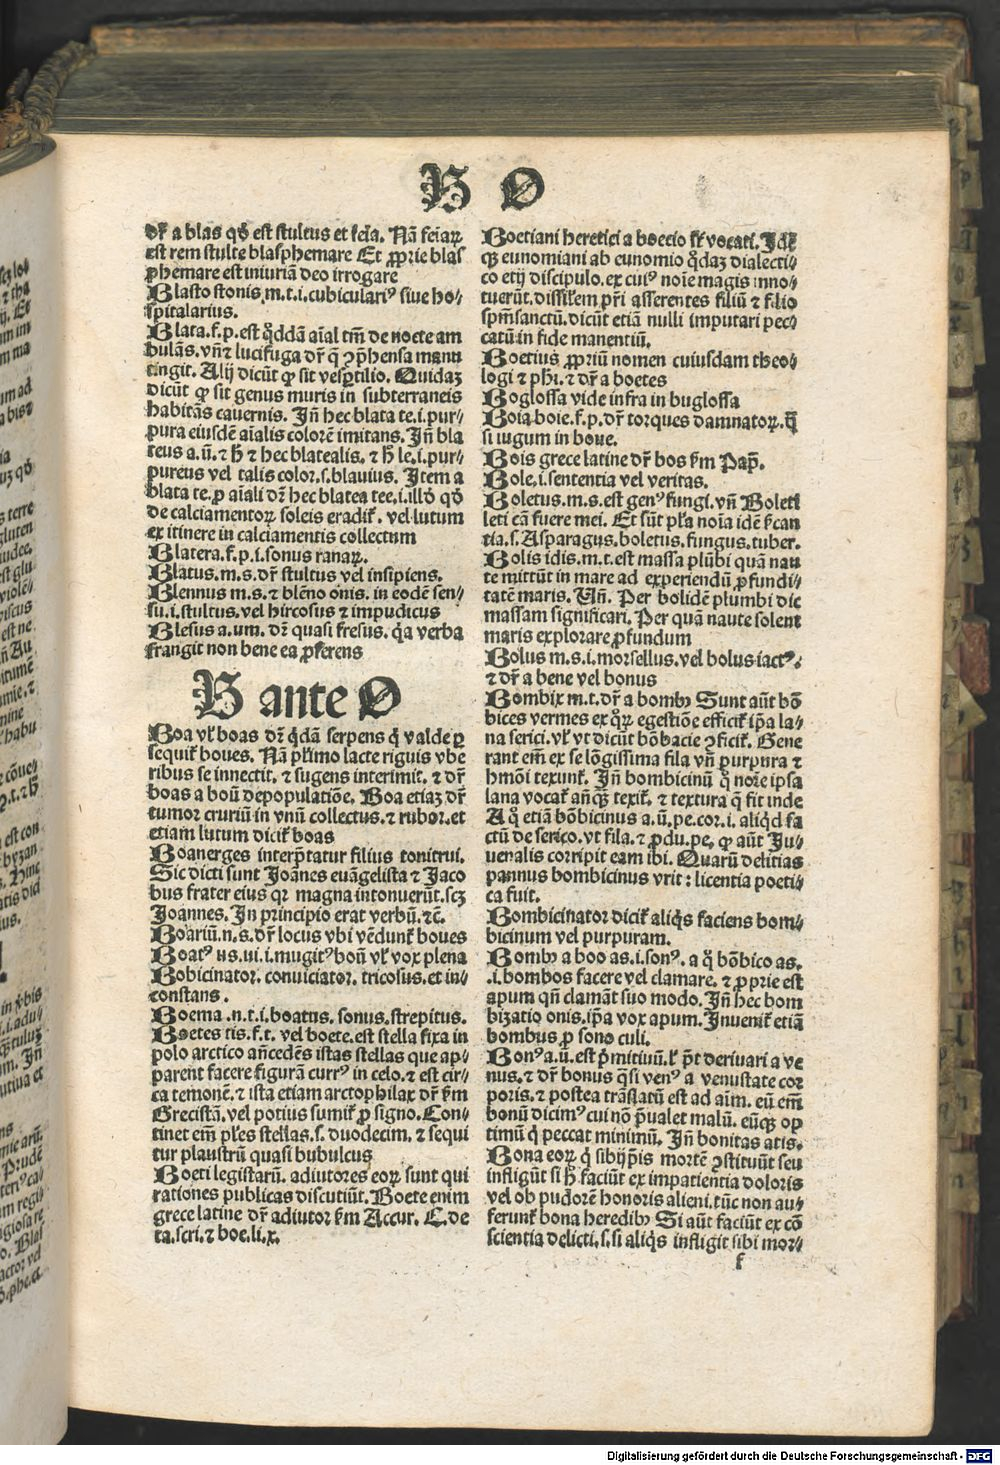 B O
dr̄ a blas qđ est stultus et feīa. Nā feīaꝝ
est rem stulte blasphemare Et ꝓprie blas
phemare est iniuriā deo irrogare
Blasto stonis. m. t. i. cubiculariꝰ siue ho-
spitalarius.
Blata. f. p. est q̄ddā aīal tm̄ de nocte am
bulās. vn̄ ⁊ lucifuga dr̄ q̄ ꝯp̄hensa manū
tingit. Alij dicūt ꝙ sit vesꝑtilio. Quidaꝫ
dicūt ꝙ sit genus muris in subterraneis
habitās cauernis. Jn̄ hec blata te. i. pur-
pura eiusdē aīalis colorē imitans. Jn̄ bla
teus a. ū. ⁊ h̄ ⁊ hec blatealis. ⁊ h̄ le. i. pur-
pureus vel talis color. s. blauius. Jtem a
blata te. ꝓ aīali dr̄ hec blatea tee. i. illđ qđ
de calciamentoꝝ soleis eradit̄. vel lutum
ex itinere in calciamentis collectum
Blatera. f. p. i. sonus ranaꝝ.
Blatus. m. s. dr̄ stultus vel insipiens.
Blennus m. s. ⁊ blēno onis. in eodē sen-
su. i. stultus. vel hircosus ⁊ impudicus
Blesus a. um. dr̄ quasi fresus. q̄a verba
frangit non bene ea ꝓferens
B ante O
Boa vl̄ boas dr̄ q̄dā serpens q̄ valde ꝑ
sequit̄ boues. Nā pl̄imo lacte riguis vbe
ribus se innectit. ⁊ sugens interimit. ⁊ dr̄
boas a boū depopulatiōe. Boa etiaꝫ dr̄
tumor cruriū in vnū collectus. ⁊ rubor. et
etiam lutum dicit̄ boas
Boanerges interp̄tatur filius tonitrui.
Sic dicti sunt Joānes euāgelista ⁊ Jaco
bus frater eius qꝛ magna intonuerūt. scꝫ
Joannes. Jn principio erat verbū. ⁊c̄.
Boariū. n. s. dr̄ locus vbi vēdunt̄ boues
Boatꝰ us. ui. i. mugitꝰ boū vl̄ vox plena
Bobicinator. conuiciator. tricosus. et in-
constans.
Boema. n. t. i. boatus. sonus. strepitus.
Boetes tis. f. t. vel boete. est stella fixa in
polo arctico an̄cedēs istas stellas que ap-
parent facere figurā currꝰ in celo. ⁊ est cir-
ca temonē. ⁊ ista etiam arctophilax dr̄ ẜm
Grecistā. vel potius sumit̄ ꝓ signo. Con-
tinet em̄ pl̄es stellas. s. duodecim. ⁊ sequi
tur plaustrū quasi bubulcus
Boeti legistarū. adiutores eoꝝ sunt qui
rationes publicas discutiūt. Boete enim
grece latine dr̄ adiutor ẜm Accur. C. de
ta. scri. ⁊ boe. li. x.
Boetiani heretici a boecio sic̄ vocati. Jdē
qꝫ eunomiani ab eunomio q̄daꝫ dialecti-
co etij discipulo. ex cuiꝰ noīe magis inno-
tuerūt. dissil̄em pr̄i asserentes filiū ⁊ filio
spm̄sanctū. dicūt etiā nulli imputari pec-
catū in fide manentiū.
Boetius ꝓpriū nomen cuiusdam theo-
logi ⁊ ph̄i. ⁊ dr̄ a boetes
Boglossa vide infra in buglossa
Boia. boie. f. p. dr̄ torques damnatoꝝ. q̄
si iugum in boue.
Bois grece latine dr̄ bos ẜm Pap̄.
Bole. i. sententia vel veritas.
Boletus. m. s. est genꝰ fungi. vn̄ Boleti
leti cā fuere mei. Et sūt pl̄a noīa idē ẜcan
tia. s. Asparagus. boletus. fungus. tuber.
Bolis idis. m. t. est massa plūbi quā nau
te mittūt in mare ad experiendū ꝓfundi-
tatē maris. Vn̄. Per bolidē plumbi dic
massam significari. Per quā naute solent
maris explorare ꝓfundum
Bolus m. s. i. morsellus. vel bolus iactꝰ.
⁊ dr̄ a bene vel bonus
Bombix m. t. dr̄ a bombꝫ Sunt aūt bō
bices vermes ex qꝫ egestiōe efficit̄ ip̄a la-
na serici. vl̄ vt dicūt bōbacie ꝯficit̄. Gene
rant em̄ ex se lōgissima fila vn̄ purpura ⁊
hmōi texunt̄. Jn̄ bombicinū q̄ noīe ipsa
lana vocat̄ an̄qꝫ texit̄. ⁊ textura q̄ fit inde
A q̊ etiā bōbicinus a. ū. pe. cor. i. aliqd̄ fa
ctū de serico. vt fila. ⁊ ꝓdu. pe. ꝙ aūt Ju-
uenalis corripit eam ibi. Quarū delitias
pannus bombicinus vrit: licentia poeti-
ca fuit.
Bombicinator dicit̄ aliq̄s faciens bom-
bicinum vel purpuram.
Bombꝫ a boo as. i. sonꝰ. a q̊ bōbico as.
.i. bombos facere vel clamare. ⁊ ꝓprie est
apum qn̄ clamāt suo modo. Jn̄ hec bom
bizatio onis. ip̄a vox apum. Jnuenit̄ etiā
bombus ꝓ sono culi.
Bonꝰ a. ū. est p̄mitiuū. l̄ pt̄ deriuari a ve
nus. ⁊ dr̄ bonus q̄si venꝰ a venustate cor
poris. ⁊ postea trāslatū est ad aīm. eū em̄
bonū dicimꝰ cui nō p̄ualet malū. eūqꝫ op
timū q̄ peccat minimū. Jn̄ bonitas atis.
Bona eoꝝ q̄ sibijp̄is mortē ꝯstituūt seu
infligūt si h̄ faciūt ex impatientia doloris
vel ob pudorē honoris alieni. tūc non au-
ferunt̄ bona heredibꝫ Si aūt faciūt ex cō
scientia delicti. s. si aliq̄s infligit sibi mor-
f
Digitalisierung gefördert durch die Deutsche Forschungsgemeinschaft - DFG